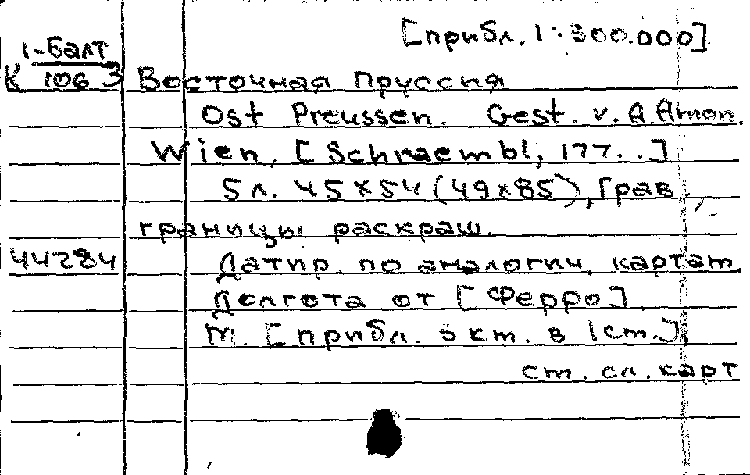 [прибл. 1:300.000]
1-Балт
К 1063 Восточная Пруссия
Ost Preussen. Gest. v. A Amon.
Wien, [Schraembl, 177..]
5 л. 45×54 (49×85), Грав
границы раскраш.
44284 Датир. по аналогич. картам
Долгота от [Ферро]
М. [прибл. 3 км. в 1см.]
ст. сл. карт